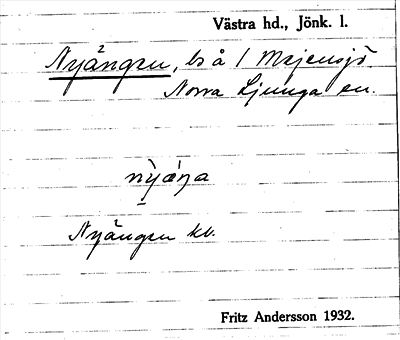 Västra hd., Jönk. l.
Nyängen, ls å 1 Mejensjö
Norra Ljunga sn.
nỳæ̀ŋa
Nyängen kb.
Fritz Andersson 1932.